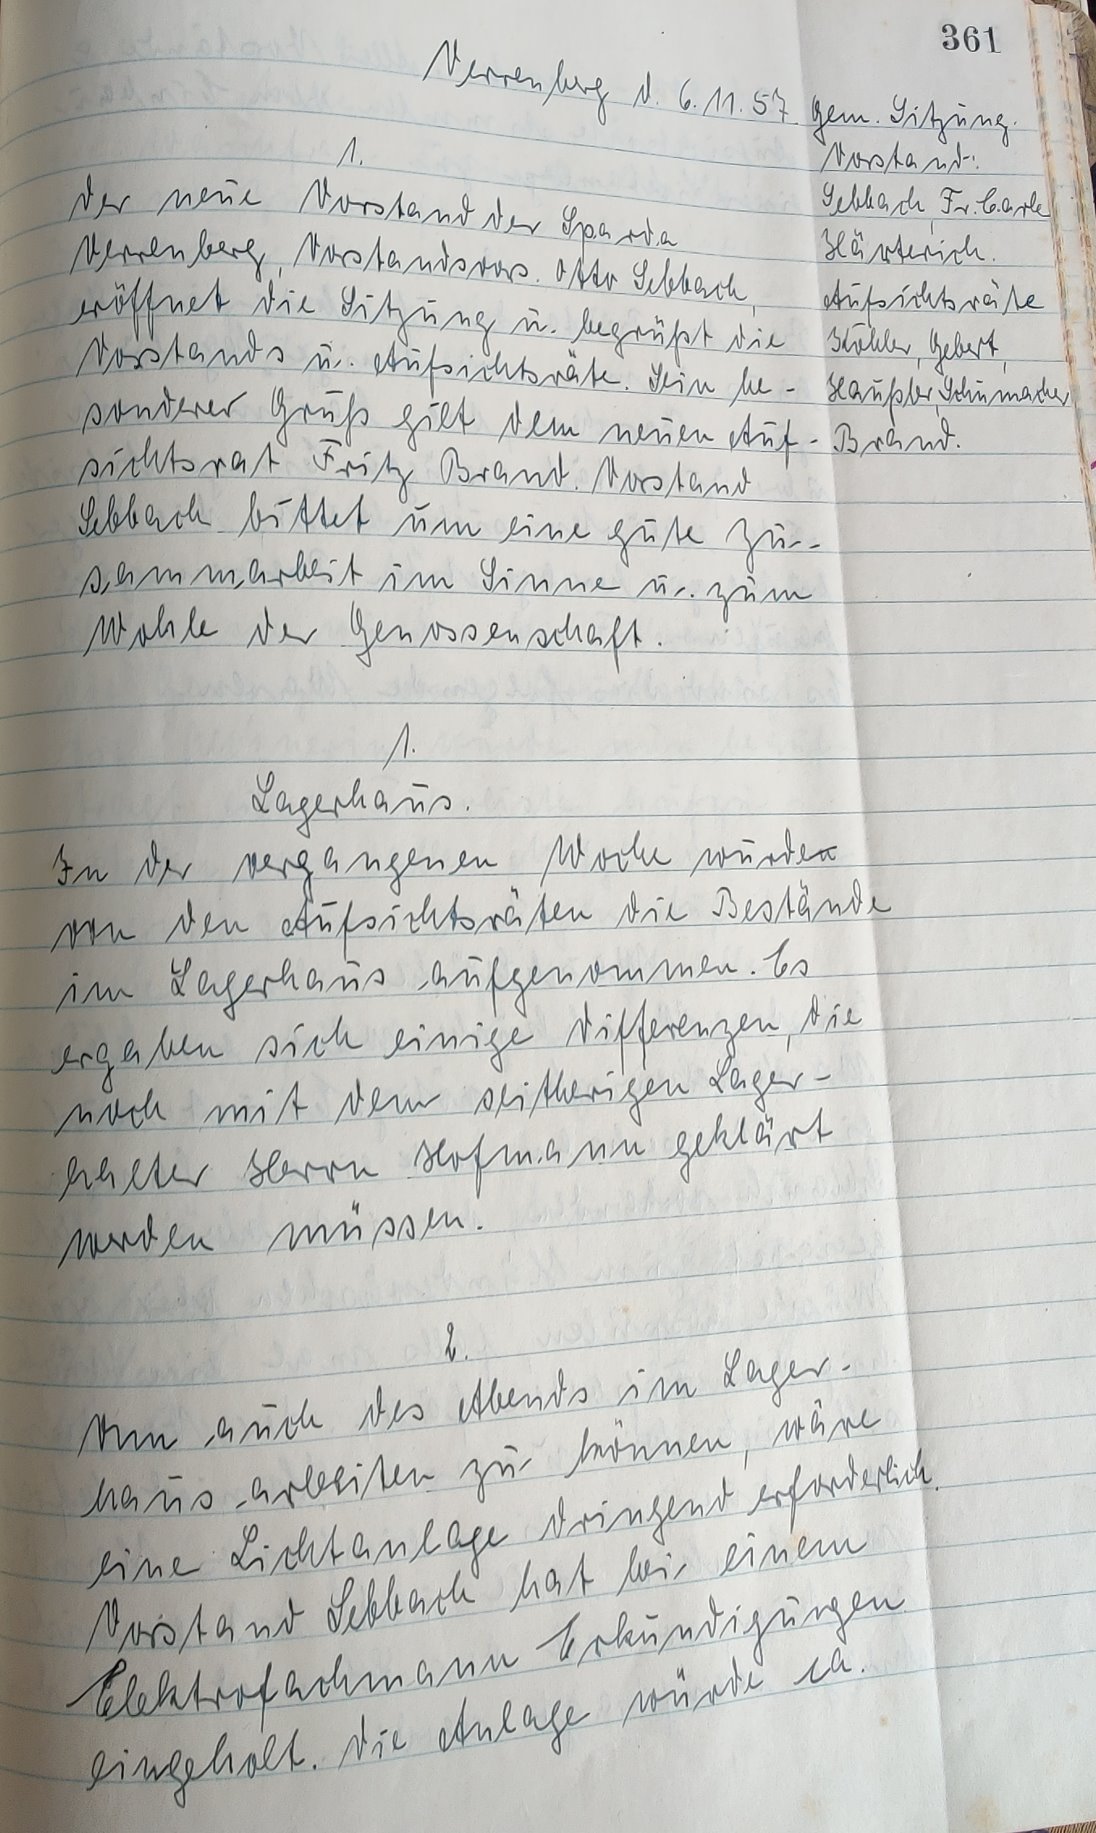 361
Verrenberg d. 6.11.57
Gem. Sitzung.
Vorstand:
Sebbach, Fr. Carle
Härterich.
Aufsichtsräte
Köhler, Gebert,
Haußler, Schumacher
Brand.
1.
Der neue Vorstand der Sparda
Verrenberg, Vorstandsvors. Otto Sebbach,
eröffnet die Sitzung u. begrüßt die
Vorstands u. Aufsichtsräte. Sein be-
sonderer Gruß gilt dem neuen Auf-
sichtsrat Fritz Brand. Vorstand
Sebbach bittet um eine gute Zu-
sammarbeit im Sinne u. zum
Wohle der Genossenschaft.
1.
Lagerhaus.
In der vergangenen Woche wurden
von den Aufsichtsräten die Bestände
im Lagerhaus aufgenommen. Es
ergaben sich einige Differenzen, die
noch mit dem seitherigen Lager-
halter Herrn Hofmann geklärt
werden müssen.
2.
Um auch des Abends im Lager-
haus arbeiten zu können, wäre
eine Lichtanlage dringend erforderlich.
Vorstand Sebbach hat bei einem
Elektrofachmann Erkundigungen
eingeholt. Die Anlage würde ca.